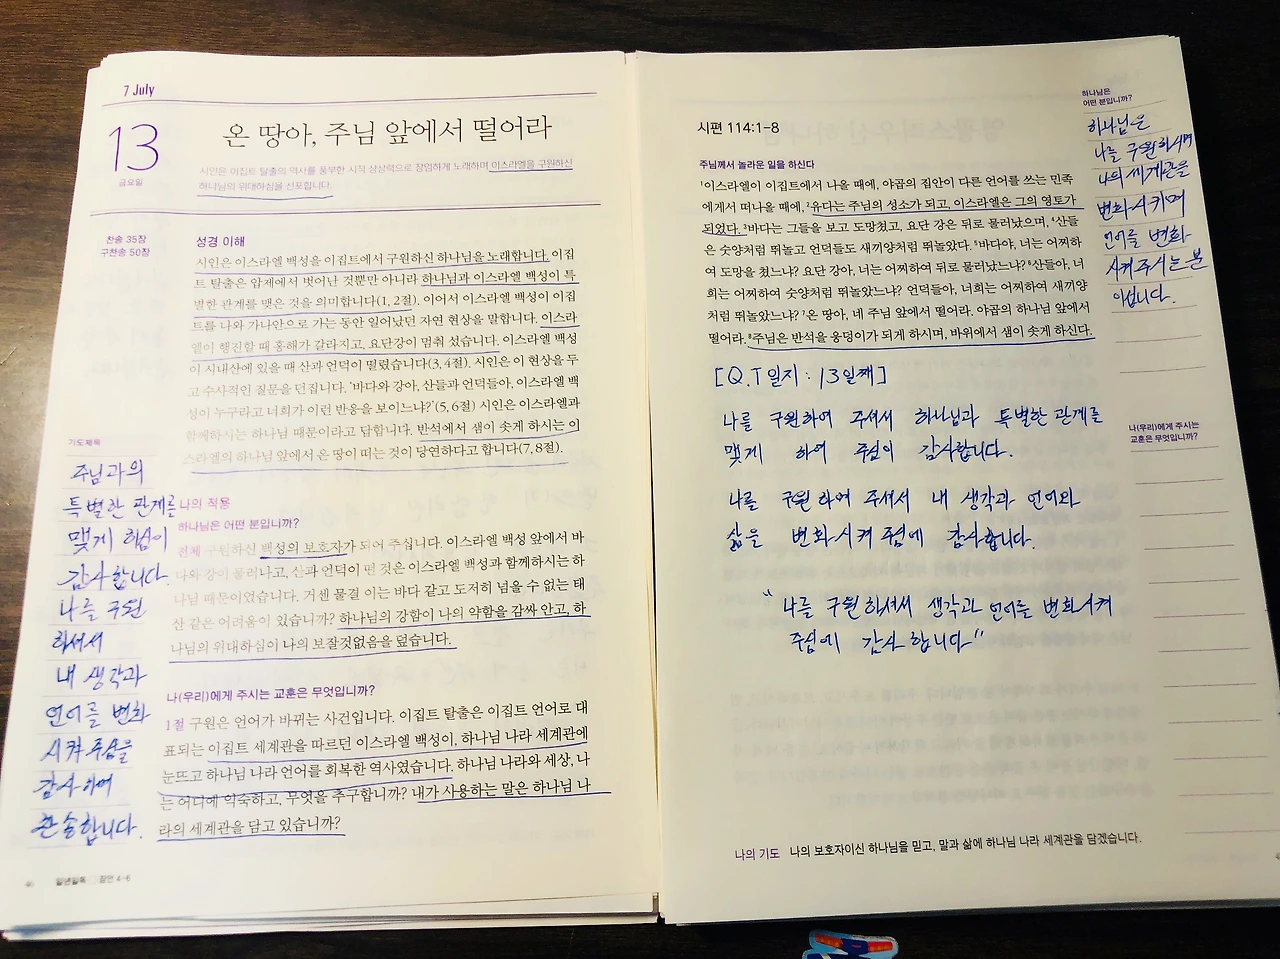 7 July
13
금요일
온 땅아, 주님 앞에서 떨어라
시인은 이집트 탈출의 역사를 풍부한 시적 상상력으로 장엄하게 노래하며 이스라엘을 구원하신
하나님의 위대하심을 선포합니다.
찬송 35장
구찬송 50장
성경 이해
시인은 이스라엘 백성을 이집트에서 구원하신 하나님을 노래합니다. 이집
트 탈출은 압제에서 벗어난 것뿐만 아니라 하나님과 이스라엘 백성이 특
별한 관계를 맺은 것을 의미합니다(1, 2절). 이어서 이스라엘 백성이 이집
트를 나와 가나안으로 가는 동안 일어났던 자연 현상을 말합니다. 이스라
엘이 행진할 때 홍해가 갈라지고, 요단강이 멈춰 섰습니다. 이스라엘 백성
이 시내산에 있을 때 산과 언덕이 떨렸습니다(3, 4절). 시인은 이 현상을 두
고 수사적인 질문을 던집니다. ‘바다와 강아, 산들과 언덕들아, 이스라엘 백
성이 누구라고 너희가 이런 반응을 보이느냐?’(5, 6절) 시인은 이스라엘과
함께하시는 하나님 때문이라고 답합니다. 반석에서 샘이 솟게 하시는 이
스라엘의 하나님 앞에서 온 땅이 떠는 것이 당연하다고 합니다(7, 8절).
기도제목
주님과의
특별한 관계를
맺게 하심이
감사합니다.
나를 구원
하셔서
내 생각과
언어를 변화
시켜 주심을
감사하며
찬송합니다.
나의 적용
하나님은 어떤 분입니까?
전체 구원하신 백성의 보호자가 되어 주십니다. 이스라엘 백성 앞에서 바
다와 강이 물러나고, 산과 언덕이 떤 것은 이스라엘 백성과 함께하시는 하
나님 때문이었습니다. 거센 물결 이는 바다 같고 도저히 넘을 수 없는 태
산 같은 어려움이 있습니까? 하나님의 강함이 나의 약함을 감싸 안고, 하
나님의 위대하심이 나의 보잘것없음을 덮습니다.
나(우리)에게 주시는 교훈은 무엇입니까?
1절 구원은 언어가 바뀌는 사건입니다. 이집트 탈출은 이집트 언어로 대
표되는 이집트 세계관을 따르던 이스라엘 백성이, 하나님 나라 세계관에
눈뜨고 하나님 나라 언어를 회복한 역사였습니다. 하나님 나라와 세상, 나
는 어디에 익숙하고, 무엇을 추구합니까? 내가 사용하는 말은 하나님 나
라의 세계관을 담고 있습니까?
46 일년일독 잠언 4-6
시편 114:1-8
주님께서 놀라운 일을 하신다
1이스라엘이 이집트에서 나올 때에, 야곱의 집안이 다른 언어를 쓰는 민족
에게서 떠나올 때에, 2유다는 주님의 성소가 되고, 이스라엘은 그의 영토가
되었다. 3바다는 그들을 보고 도망쳤고, 요단 강은 뒤로 물러났으며, 4산들
은 숫양처럼 뛰놀고 언덕들도 새끼양처럼 뛰었다. 5바다야, 너는 어찌하
여 도망을 쳤느냐? 요단 강아, 너는 어찌하여 뒤로 물러났느냐? 6산들아, 너
희는 어찌하여 숫양처럼 뛰놀았느냐? 언덕들아, 너희는 어찌하여 새끼양
처럼 뛰놀았느냐? 7온 땅아, 네 주님 앞에서 떨어라. 야곱의 하나님 앞에서
떨어라. 8주님은 반석을 웅덩이가 되게 하시며, 바위에서 샘이 솟게 하신다.
[Q.T일지 : 13일째]
나를 구원하여 주셔서 하나님과 특별한 관계를
맺게 하여 주심이 감사합니다.
나를 구원하여 주셔서 내 생각과 언어와
삶을 변화시켜 주심에 감사합니다.
" 나를 구원하셔서 생각과 언어를 변화시켜
주심에 감사합니다"
나의 기도 나의 보호자이신 하나님을 믿고, 말과 삶에 하나님 나라 세계관을 담겠습니다.
하나님은
어떤 분입니까?
하나님은
나를 구원하시며
나의 세계관을
변화시키며
언어를 변화
시켜 주시는 분
이십니다.
나(우리)에게 주시는
교훈은 무엇입니까?